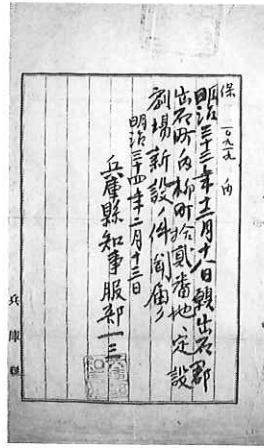 保一〇九一九 内
明治三十三年十二月十八日願出石郡
出石町内柳町拾貳番地ニ定設
劇場新設ノ件聞届ク
明治三十四年二月十三日
兵庫縣知事服部一三
兵庫縣